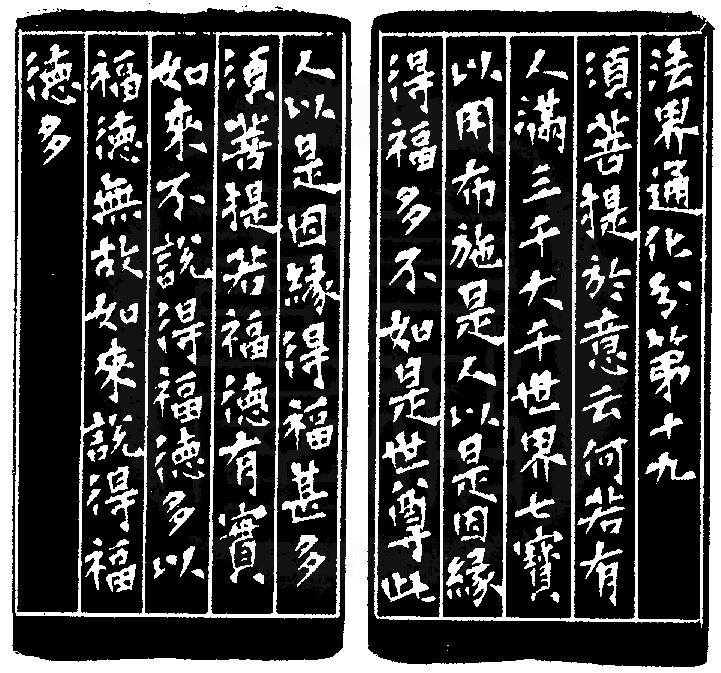 法界通化分第十九
須菩提於意云何若有
人滿三千大千世界七寶
以用布施是人以是因緣
得福多不如是世尊此
人以是因緣得福甚多
須菩提若福德有實
如來不說得福德多以
福德無故如來說得福
德多